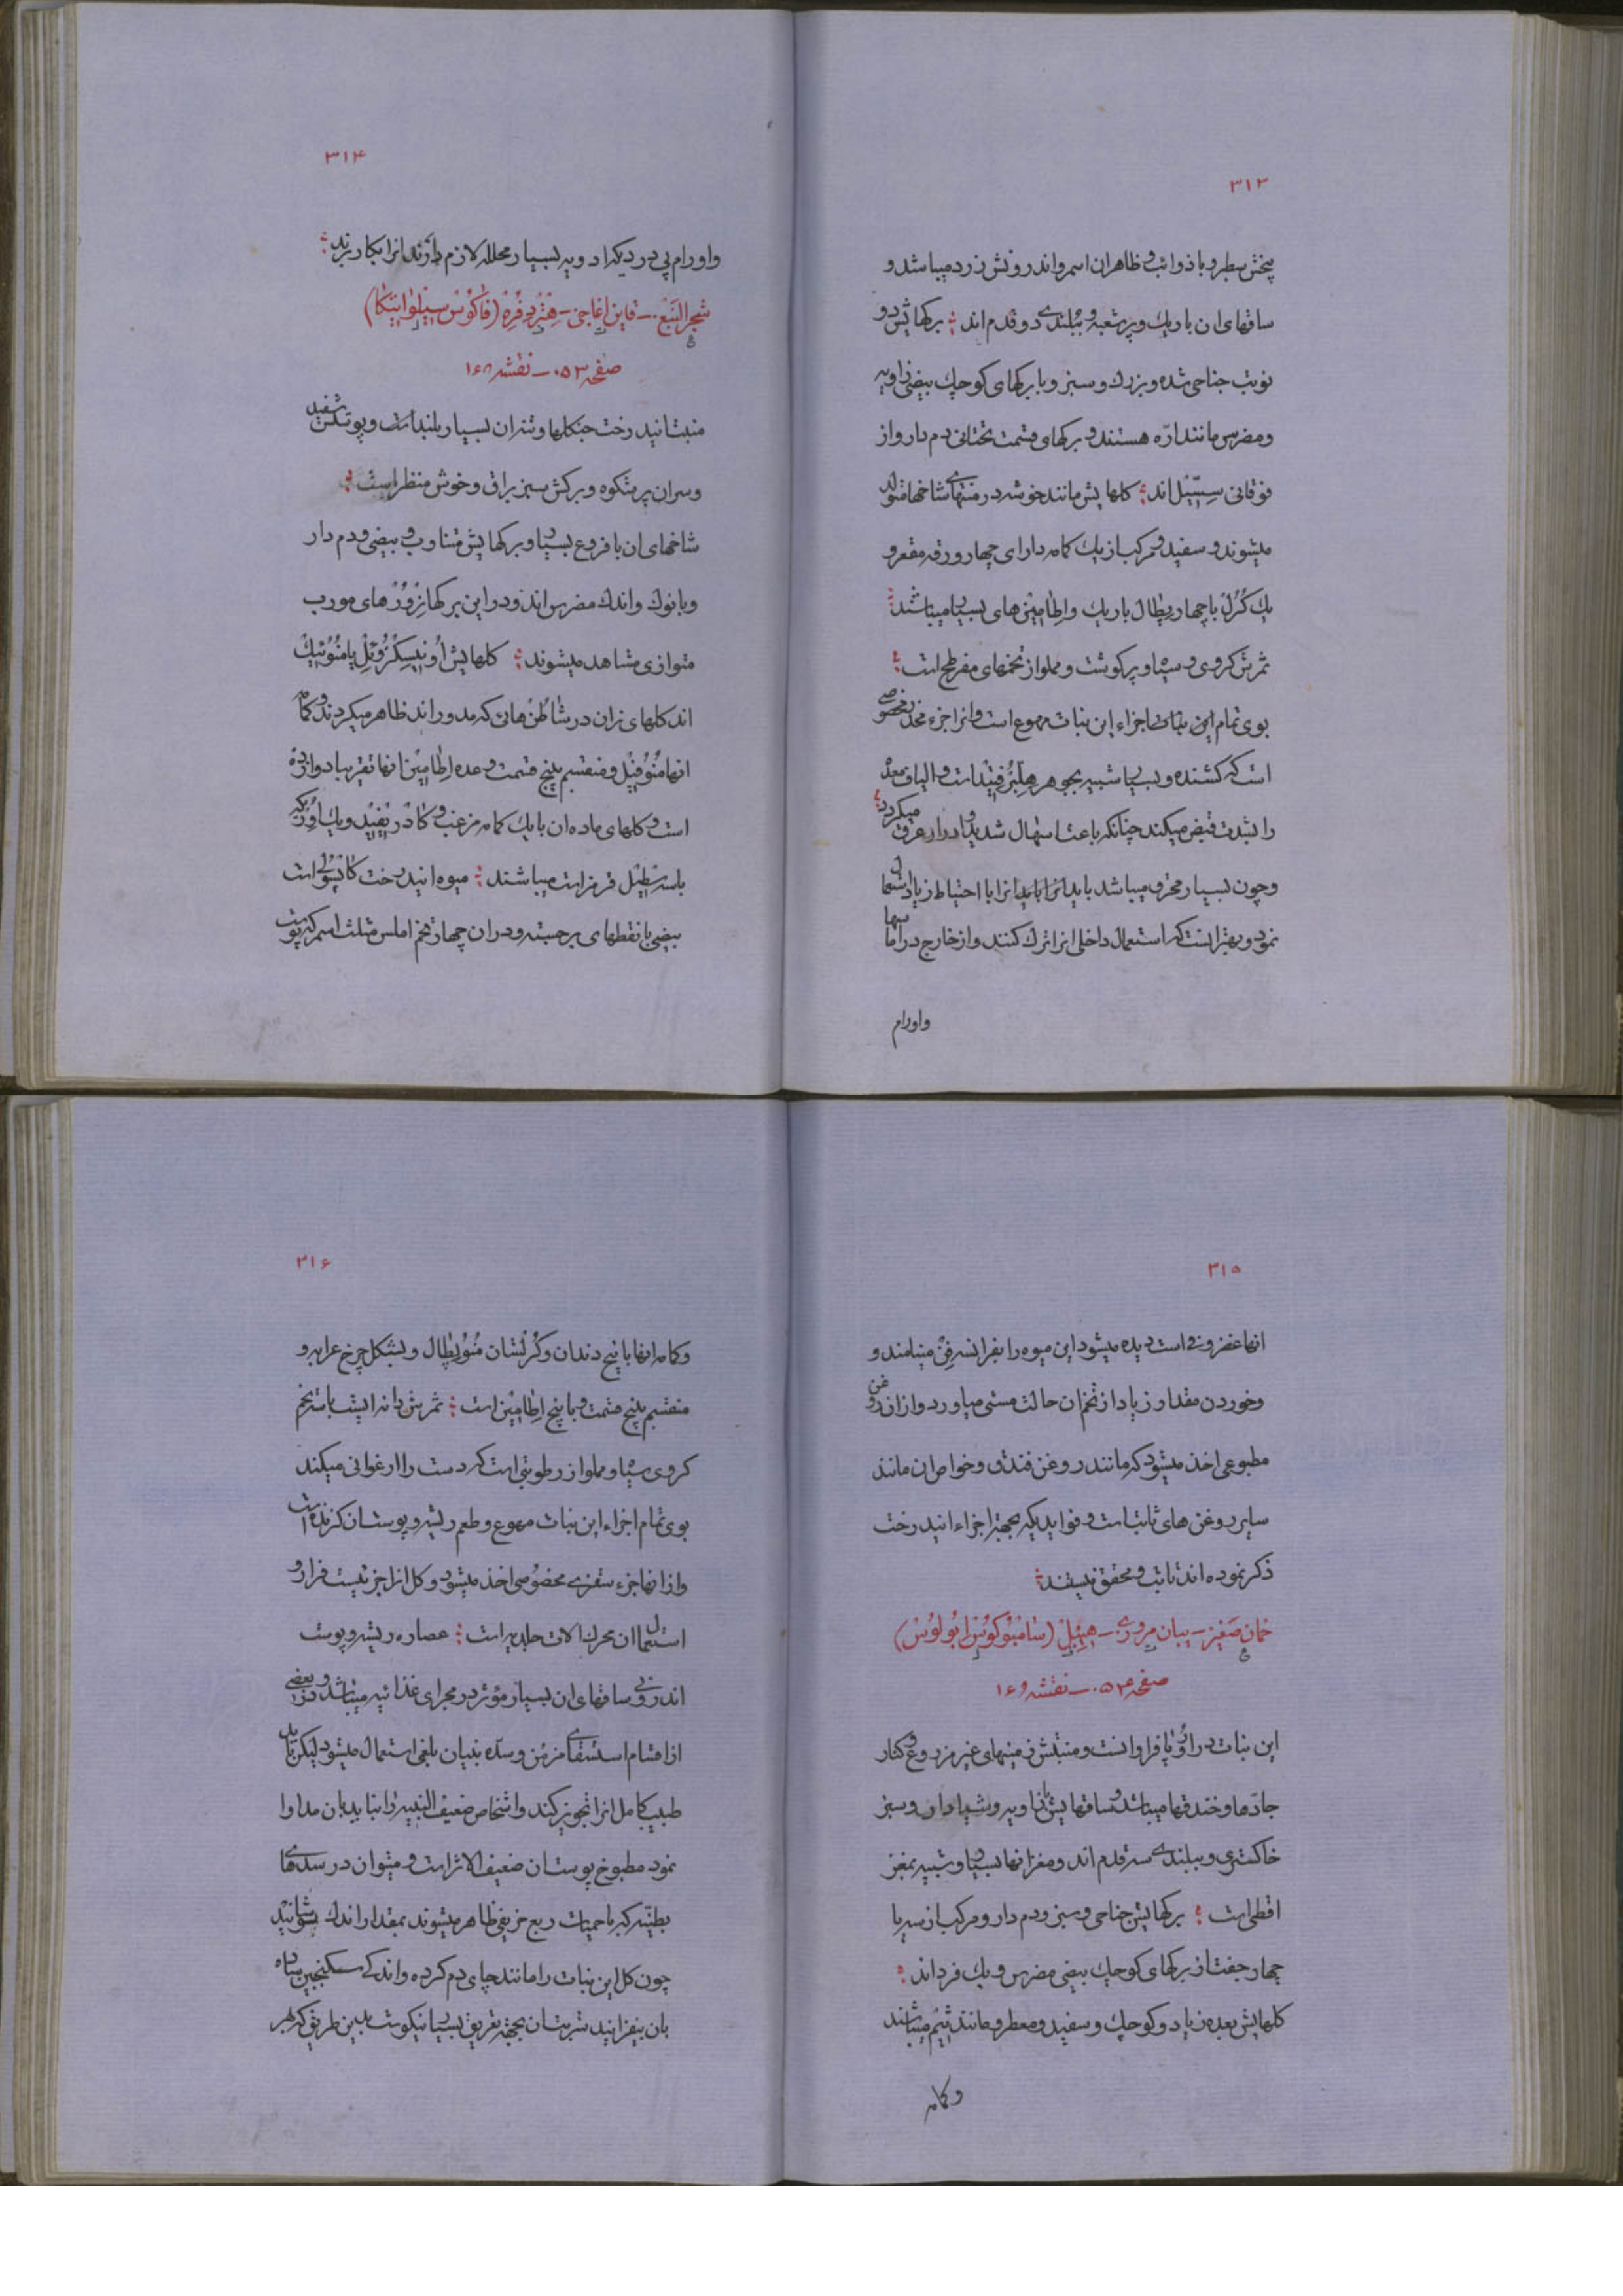 ۳۱۳
بیخش سطبر و با ذوائب و ظاهر ان اسمر و اندرونش زرد میباشد و
ساقهای ان باریك و پر شعبه و ببلندی دو قدم اند ؛ برکهایش دو
نوبت جناحی شده و بزرك و سبز و با برکهای کوچك بیضی زاویه
و مضرس مانند ارّه هستند و برکهای قسمت تحتانی دم دار و از
فوقانی سسیل اند ؛ کلهایش مانند خوشه در منتهای شاخها متولد
میشوند و سفید و مرکب از یك کامه دارای چهار ورقه مقعر و
یك کرل با چهار پطال باریك و اطامین های بسیار میباشند ؛
ثمرش کروی و سیاه و پر کوشت و مملو از تخمهای مفرطح است ؛
بوی تمام اجزاء این نبات مهوع است و انرا جزء مخدر مخصوصی
است که کشنده و بسیار شبیه بجوهر است و الیاف معده
را بشدت قبض میکند چنانکه باعث اسهال شدید و ادرار عرق میکردد ؛
و چون بسیار محرق میباشد باید انرا با احتیاط زیاد استعمال
نمود و بهتر انست که استعمال داخلی انرا ترك کنند و از خارج در اماسها
و اورام
۳۱۴
و اورام پی درد یکه ادویه بسیار محلله لازم دارند انرا بکار برند ؛
شجر النبع - قاین اغاجی - هتر دو فره (فاکوس سیلواتیکا)
صفحه ۰۵۳ - نقشه ۱۶۸
منبت انید رخت جنکلها و تنه ان بسیار بلند است و پوستش سفید
و سران پر شکوه و برکش سبز براق و خوش منظر است ؛
شاخهای ان با فروع بسیار و برکهایش متناوب و بیضی و دم دار
و با نوك و اندك مضرس اند و در این برکها نرورهای مورب
متوازی مشاهد میشوند ؛ کلهایش اونیسکزوئل یا منوئیك
اند کلهای نر ان در شاطن هائی که مدور اند ظاهر میکردند و کامه
انها منوفیل و منقسم بپنج قسمت و عده اطامین انها تقریبا دوازده
است و کلهای ماده ان با یك کامه مزغب و کادریفید و یك اوریکه
با سه سطیل قرمز است میباشند ؛ میوه انید رخت کاپسولی است
بیضی با نقطهای برجسته و در ان چهار تخم املس مثلث اسمر که پوست
۳۱۵
انها غضروفی است دیده میشود این میوه را بفرانسه فن مینامند و
و خوردن مقدار زیاد از تخم ان حالت مستی میاورد و از ان روغن
مطبوعی اخذ میشود که مانند روغن فندق و خواص ان مانند
سایر روغن های ثابت است و فوایدیکه بجهة اجزاء انید رخت
ذکر نموده اند ثابت و محقق نیستند ؛
خمان صغیر - یبان مروری - هیئبل (سامبوکوئس ابولوس)
صفحه ۰۵۴ - نقشه ۱۶۹
این نبات در اروپا فراوانست و منبتش زمینهای غیر مزروع و کنار
جادها و خندقها میباشد و ساقهایش با زاویه و شیار دار و سبز
خاکستری و ببلندی سه قدم اند و مغز انها بسیار و شبیه بمغز
اقطی است ؛ برکهایش جناحی و سبز و دم دار و مرکب از سه یا
چهار جفت از برکهای کوچك بیضی مضرس و یك فرد اند ؛
کلهایش بعده زیاد و کوچك و سفید و معطر و مانند تیم میباشند
و کامه
۳۱۶
و کامه انها با پنج دندان و کرلشان منوپطال و بشکل چرخ عرابه و
منقسم بپنج قسمت و با پنج اطامین است ؛ ثمرش دانه ایست با سه تخم
کروی سیاه و مملو از رطوبتی است که دست را ارغوانی میکند
بوی تمام اجزاء این نبات مهوع و طعم ریشه و پوست ان کزنده است
و از انها جزء سقزی مخصوصی اخذ میشود و کل انرا جزئیست فرار و
استعمال ان محرك الات جلدیه است ؛ عصاره ریشه و پوست
اندرونی ساقهای ان بسیار مؤثر در مجرای غذائیه میباشد و در بعضی
از اقسام استسقای مزمن و سدّه بنیان بلغمی استعمال میشود لیکن باید
طبیب کامل انرا تجویز کند و اشخاص ضعیف البنیه را نباید بان مداوا
نمود مطبوخ پوست ان ضعیف الاثر است و میتوان در سدهای
بطنیه که با حمیات ربع خریفی ظاهر میشوند بمقدار اندك نوشانید
چون کل این نبات را مانند چای دم کرده و اندکی سکنجبین ساده
بان بیفزایند شربت ان بجهة تعریق بسیار نیکوست بدین طریق که هر